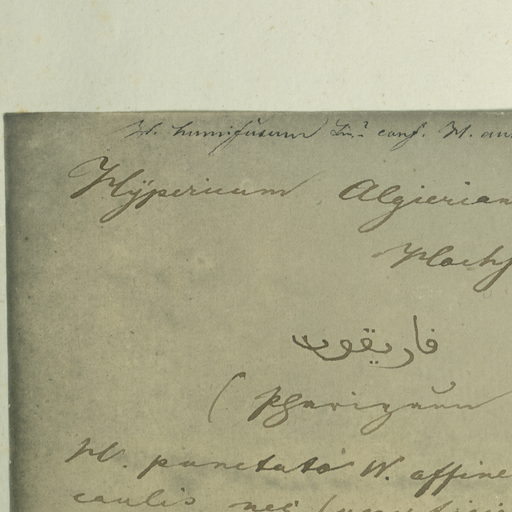 H. humifusum Lin? conf. H. au
Hÿpericum Algierian
Hochs
فاريقون
(Pharigŭun
H. punctato W. affine
caulis